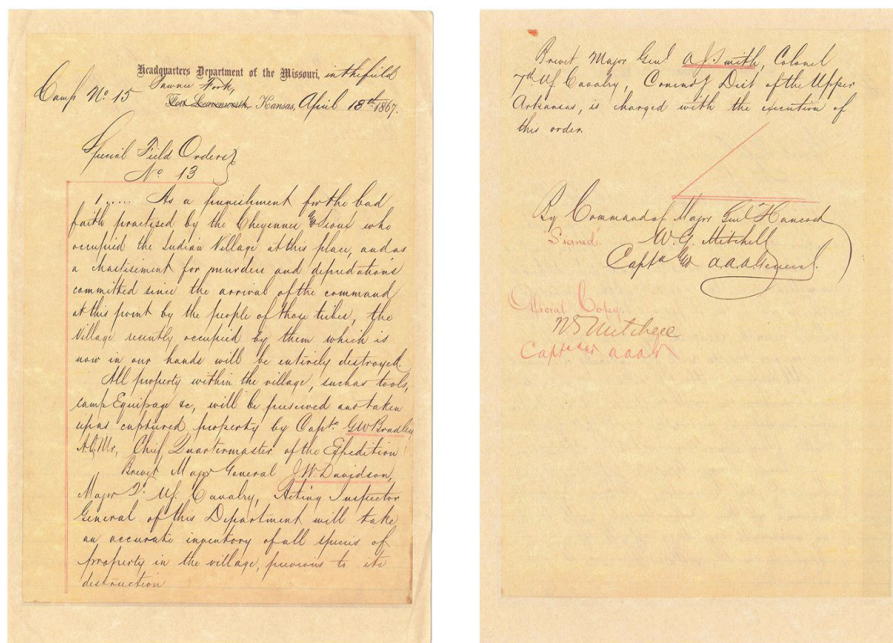 Headquarters Department of the Missouri, in the field
Camp No 15 Pawnee Fork,
Fort Leavenworth, Kansas, April 18th 1867.
Special Field Orders
No 13
1..... As a punishment for the bad
faith practised by the Cheyennes & Sioux who
occupied the Indian Village at this place, and as
a chastisement for murders and depredations
committed since the arrival of the command
at this point by the people of those tribes, the
Village recently occupied by them which is
now in our hands will be entirely destroyed.
All property within the village, such as tools,
camp Equipage &c, will be preserved and taken
up as captured property by Capt. GW Bradley
A.Q.M., Chief Quartermaster of the Expedition
Brevet Major General J.W. Davidson,
Major 2d U.S. Cavalry, Acting Inspector
General of this Department will take
an accurate inventory of all species of
property in the village, previous to its
destruction
Brevet Major Genl A J Smith, Colonel
7th U.S. Cavalry, Comdg Dist of the Upper
Arkansas, is charged with the execution of
this order
By Command of Major Genl Hancock
Signed W.G. Mitchell
Capt & A.A.A. General.
Official Copy
WG Mitchell
Capt & AAAG